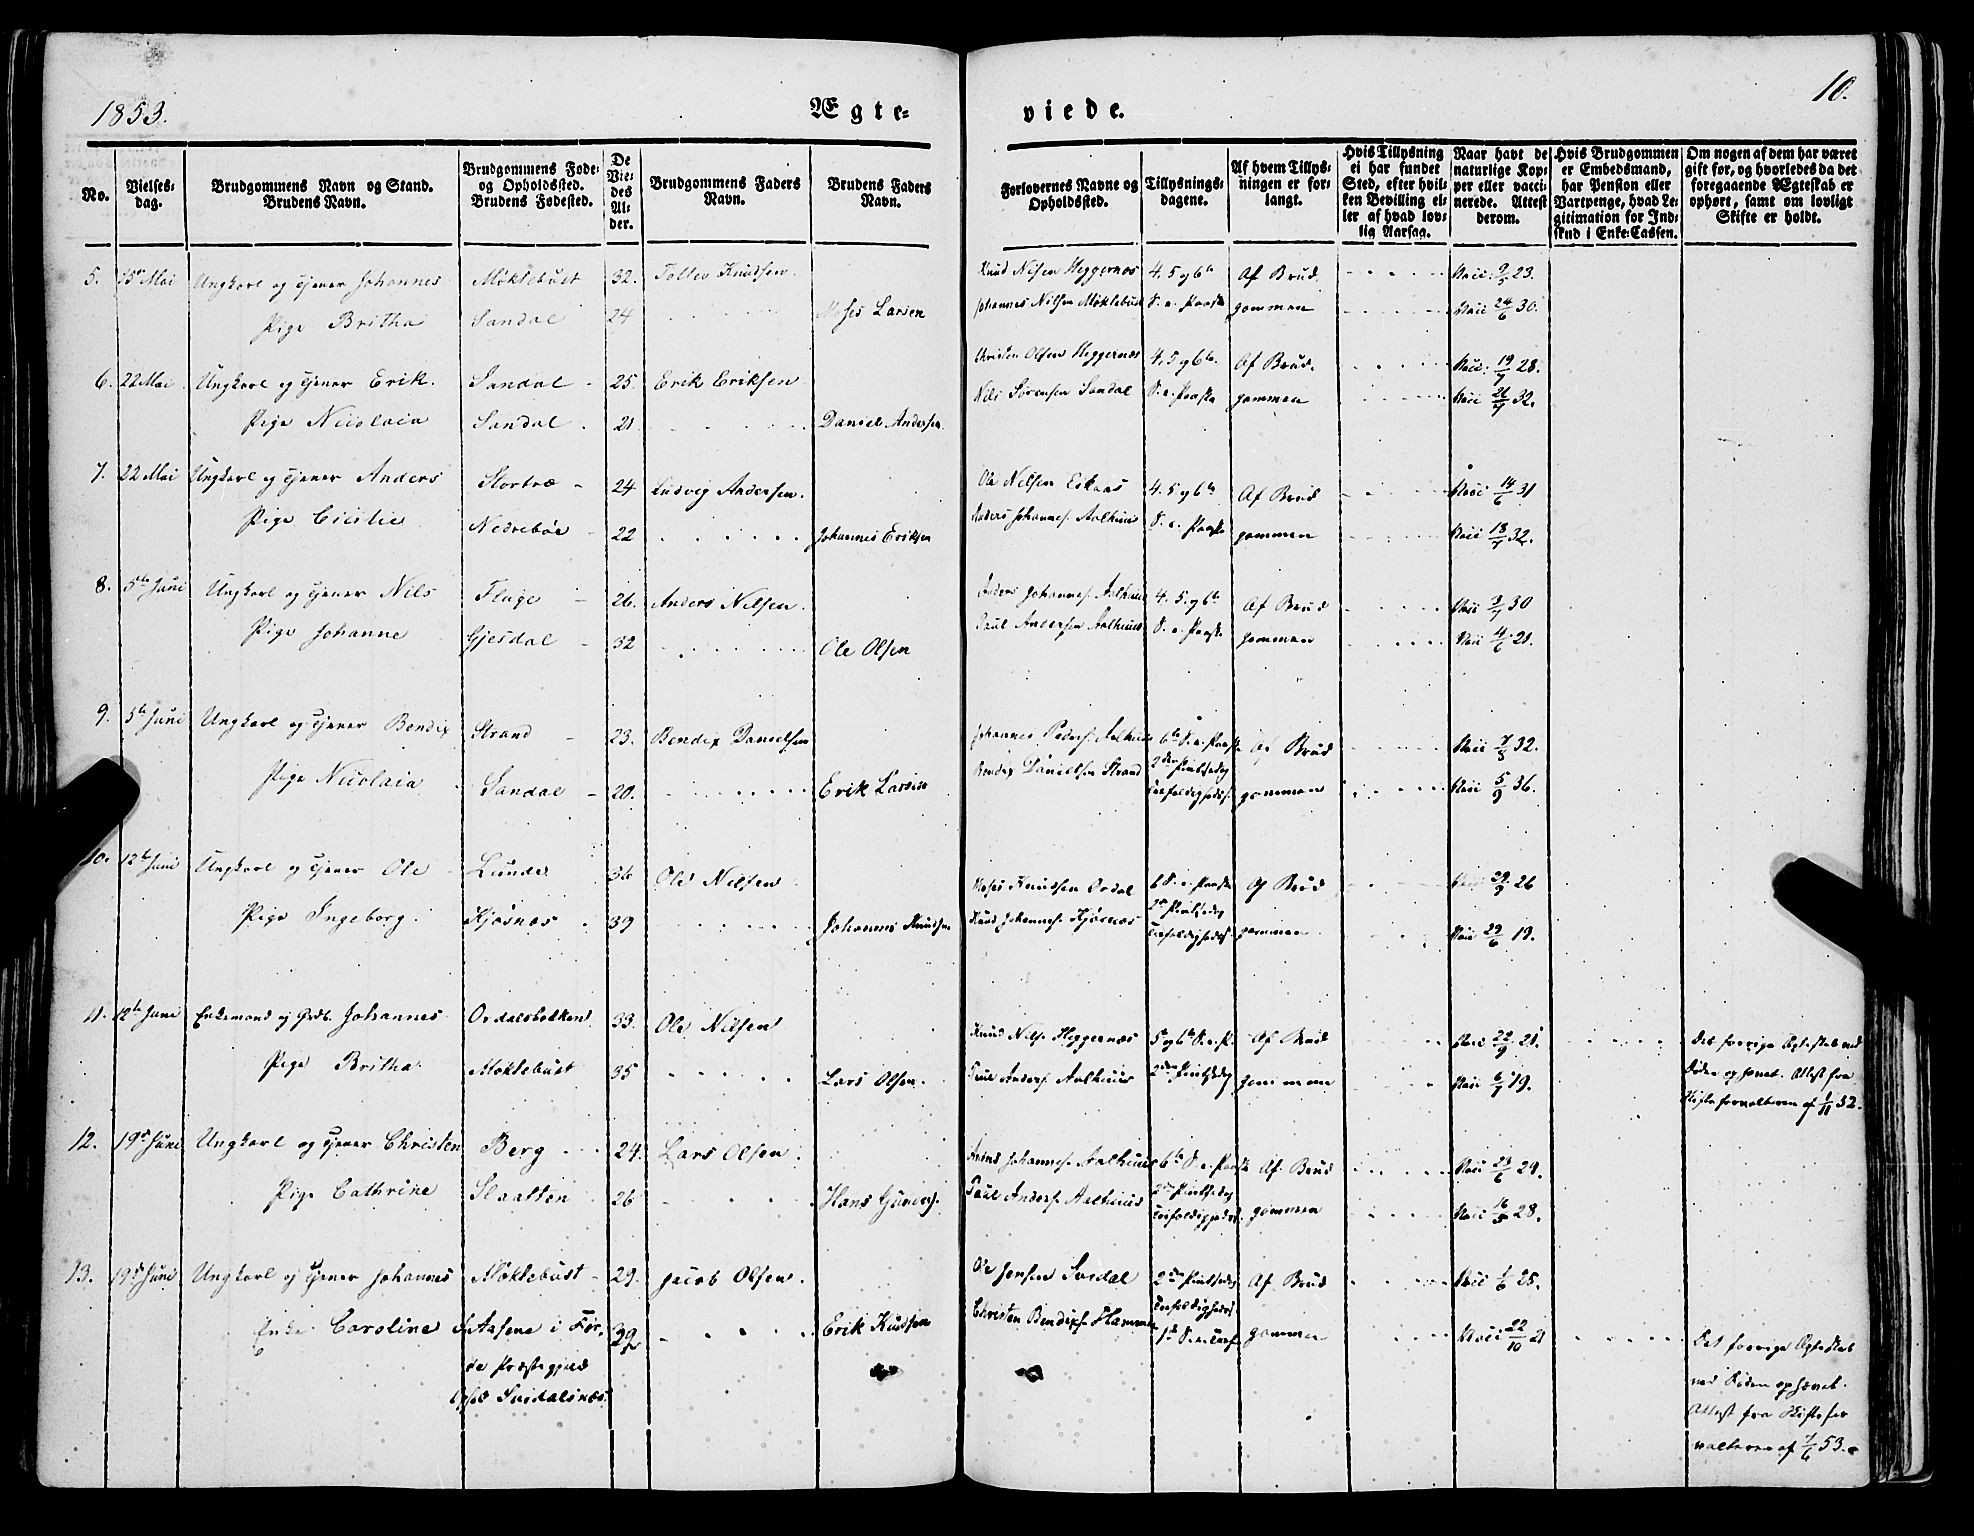 1853.
Ægte-
viede.
10.
No.
Vielses-
dag.
Brudgommens Navn og Stand.
Brudens Navn.
Brudgommens Føde-
og Opholdssted.
Brudens Fødested.
De
Vie-
des
Al-
der.
Brudgommens Faders
Navn.
Brudens Faders
Navn.
Forlovernes Navne og
Opholdssted.
Tillysnings-
dagene.
Af hvem Tillys-
ningen er for-
langt.
Hvis Tillysning
ei har fundet
Sted, efter hvil-
ken Bevilling el-
ler af hvad lov-
lig Aarsag.
Naar havt de
naturlige Kop-
per eller vacci-
nerede. Attest
derom.
Hvis Brudgommen
er Embedsmand,
har Pension eller
Vartpenge, hvad Le-
gitimation for Ind-
skud i Enke-Cassen.
Om nogen af dem har været
gift før, og hvorledes da det
foregaaende Ægteskab er
ophørt, samt om lovligt
Skifte er holdt.
5. 15de Mai Ungkarl og Tjener Johannes Møklebust 32. Tollev Knudsen Knud Nilsen Heggernæs 4, 5 og 6te Af Brud Vacc: 9/5 23.
Pige Britha Sandal 24 Moses Larsen Johannes Nilsen Møklebust S. e. Paaske gommen Vacc 24/6 30.
6. 22 Mai Ungkarl og Tjener Erik Sandal 25. Erik Eriksen Christen Olsen Heggernæs 4, 5 og 6te Af Brud Vacc: 19/7 28.
Pige Nicolaia Sandal 21 Daniel Andersen Nils Sørensen Sandal S. e. Paaske gommen Vacc 26/7 32.
7. 22 Mai Ungkarl og Tjener Anders Stortræ 24 Ludvig Andersen Ole Nilsen Eikaas 4. 5 og 6te Af Brud Vacc 14/6 31
Pige Cicilie Nedrebøe 22 Johannes Eriksen Anders Johannes. Aalhuus S. e. Paaske gommen Vacc 18/7 32.
8. 5te Juni Ungkarl og Tjener Nils Flage 26. Anders Nilsen Anders Johannes. Aalhuus 4. 5. og 6te Af Brud Vacc 3/7 30
Pige Johanne Gjesdal 32 Ole Olsen Paul Andersen Aalhuus S. e. Paaske gommen Vacc 4/6 21.
9. 5te Juni Ungkarl og Tjener Bendix Strand 23. Bendix Danielsen Johannes Peders. Aalhuus 6te S. e. Paaske Af Brud Vacc 7/5 32.
Pige Nicolaia Sandal 20. Erik Larsen Bendix Danielsen Strand 2den Pintsedag Trefoldighedsf. gommen Vacc 5/9 36.
10. 12te Juni Ungkarl og Tjener Ole Lunde 36 Ole Nilsen Moses Knudsen Ordal 6 S. e. Paaske Af Brud Vacc 29/9 26
Pige Ingeborg Kjøsnæs 39 Johannes Knudsen Knud Johannes. Kjøsnæs 2den Pintsedag Trefoldighedsf. gommen Vacc 29/6 19.
11. 12te Juni Enkemand og Grdb. Johannes Ordalsbakken 33. Ole Nilsen Knud Nils. Heggernæs 5te og 6te S. e. P. Af Brud Vacc 22/9 21 Det forrige Ægteskab ved
Pige Britha Møklebust 35 Lars Olsen Paul Anders. Aalhuus 2den Pintsedag gommen Vacc 6/7 19. Døden ophævet. Attest fra
Skifteforvalteren af 1/11 52.
12. 19de Juni Ungkarl og Tjener Christen Berg 24. Lars Olsen Anders Johannes. Aalhuus 6te S. e. Paaske Af Brud Vacc 23/6 29.
Pige Cathrine Slaatten 26 Hans Gunders. Paul Anders. Aalhuus 2den Pintsedag Trefoldighedsf. gommen Vacc 16/5 28.
13. 19de Juni Ungkarl og Tjener Johannes Møklebust 29. Jacob Olsen Ole Jensen Svidal 2den Pintsedag Af Brud Vacc 1/6 25.
Enke Caroline Aasene i Før- 39 Erik Knudsen Christen Bendixs. Hammer Trefoldighedsf. 1ste S. e. Tref. gommen Vacc 22/10 21 Det forrige Ægteskab
de Præstegjeld ved Døden ophævet.
Svidalsnæs. Attest fra Skiftefor
valteren af 7/6 53.